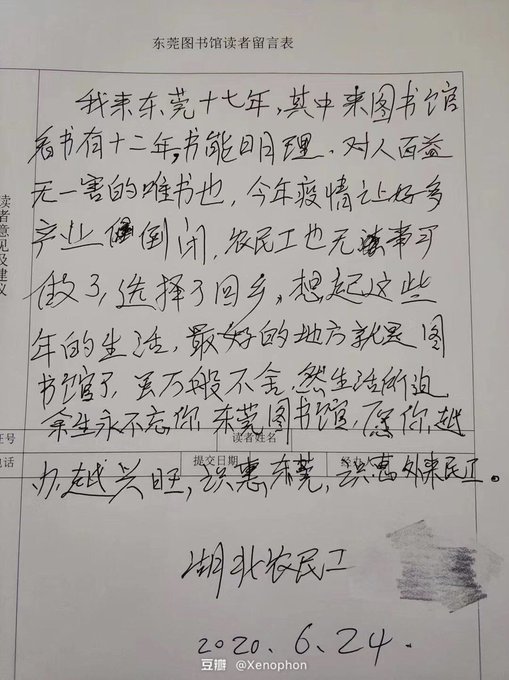 东莞图书馆读者留言表
我来东莞十七年，其中来图书馆
看书有十二年，书能明理，对人百益
无一害的唯书也，今年疫情让好多
产业倒闭，农民工也无事可
做了，选择了回乡，想起这些
年的生活，最好的地方就是图
书馆了，虽万般不舍，然生活所迫
余生永不忘你，东莞图书馆，愿你越
办越兴旺，识惠东莞，识惠外来民工。
读者意见及建议
证号
读者姓名
电话
提交日期
湖北农民工
2020.6.24.
豆瓣 @Xenophon